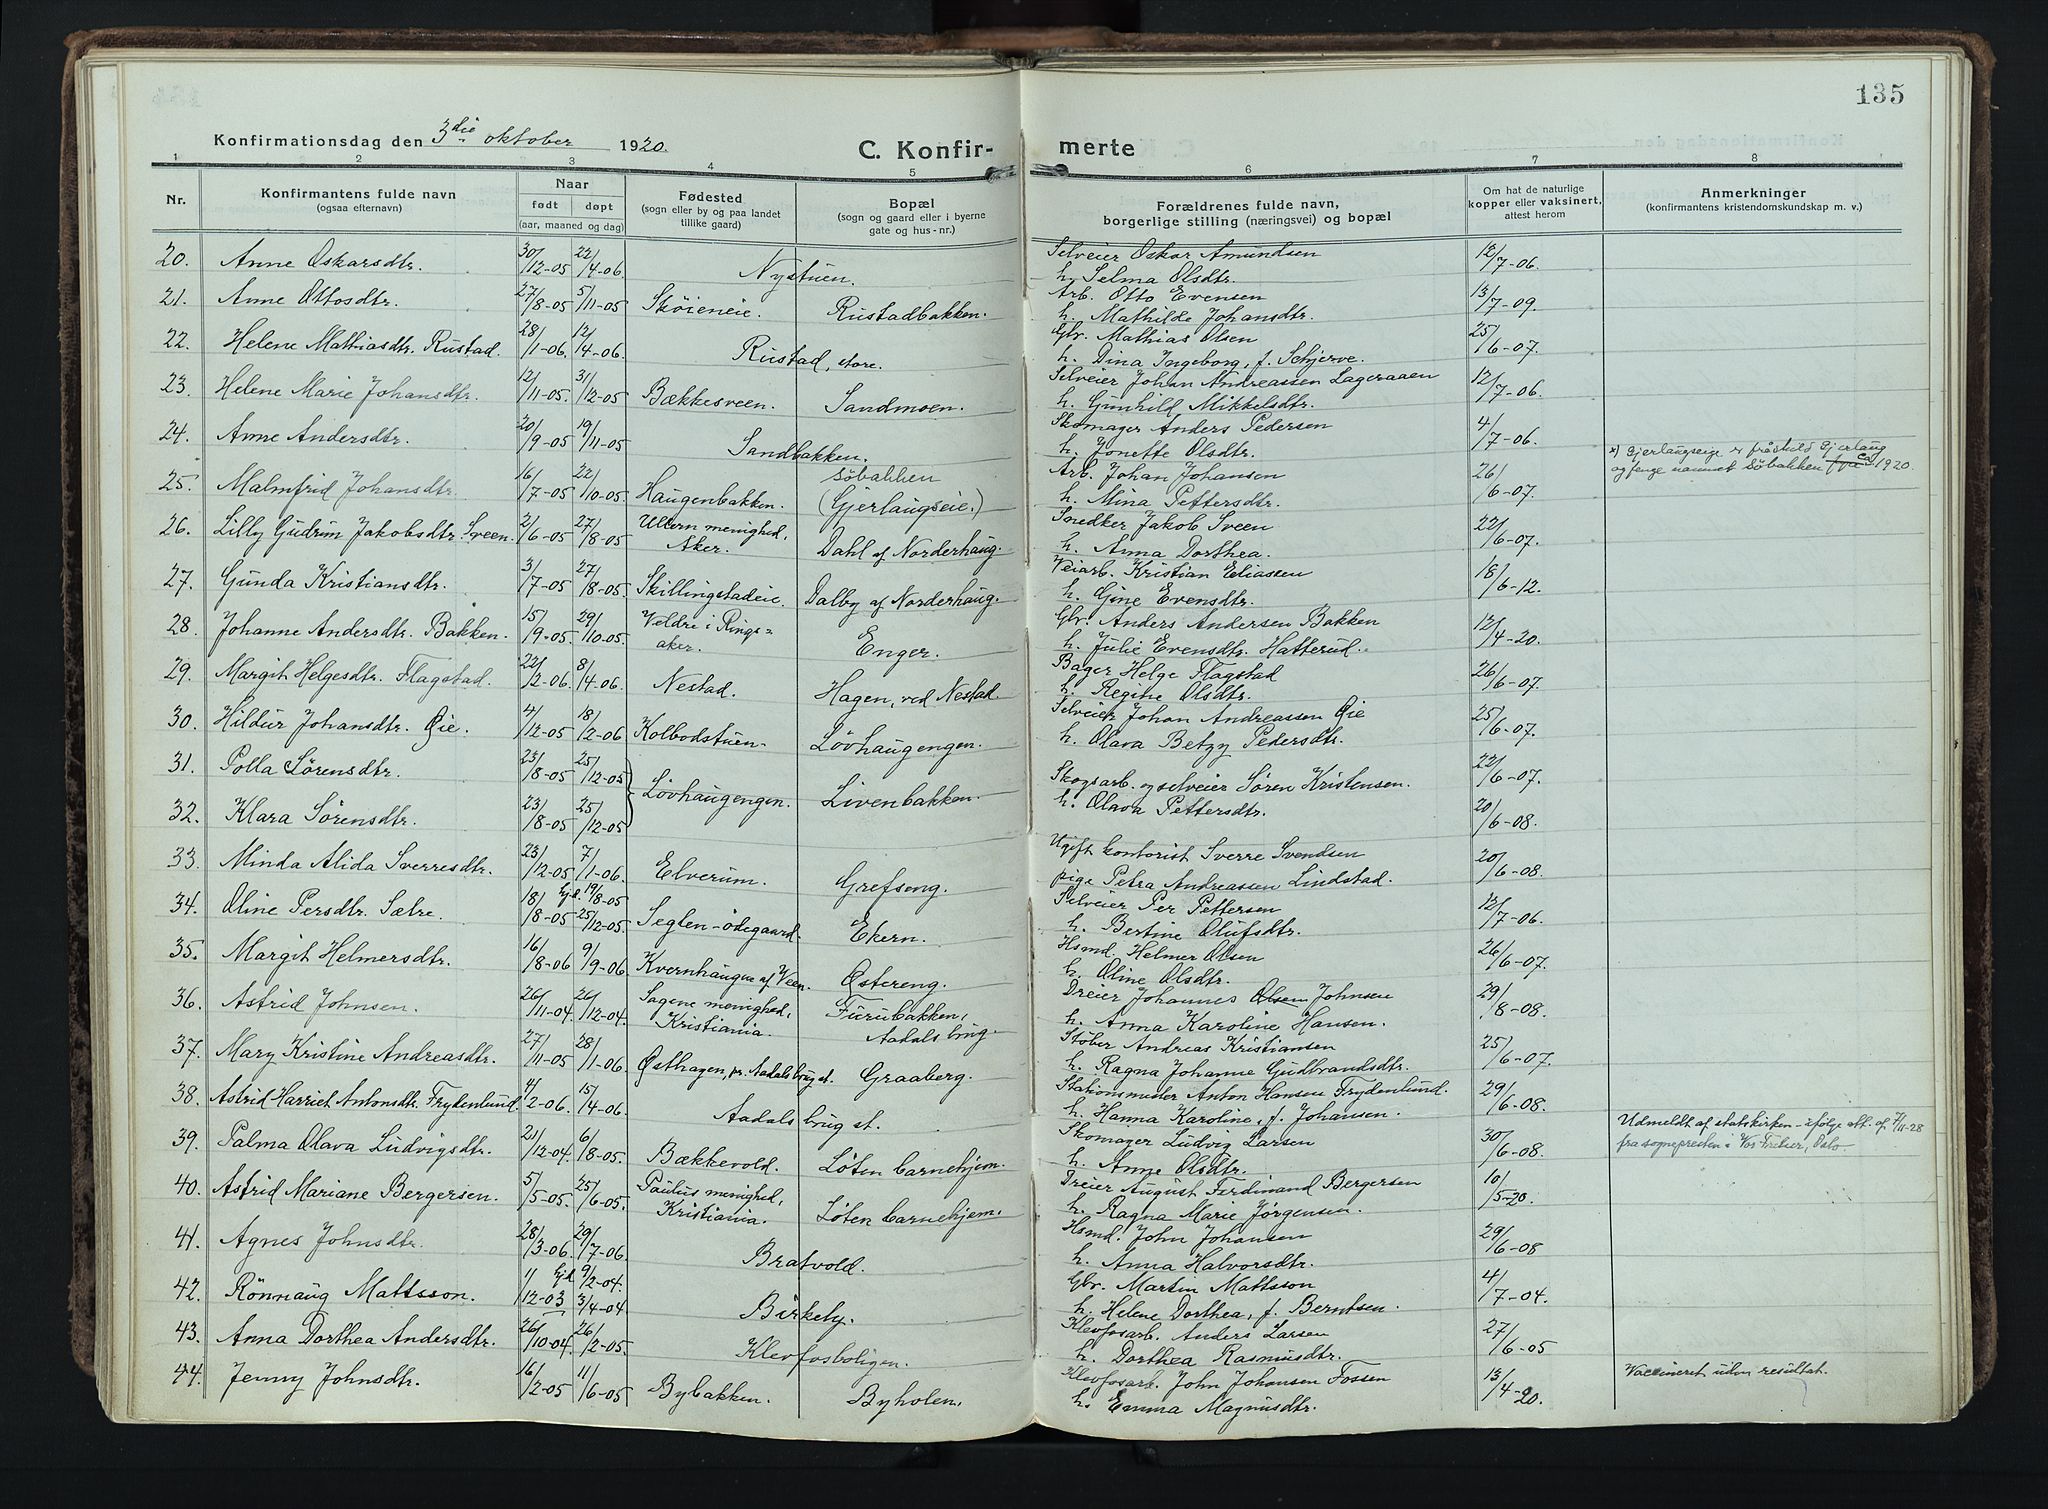 135
Konfirmationsdag den 3die oktober 1920.
C. Konfir- merte
1 2 3 4 5 6 7 8
Nr. Konfirmantens fulde navn (ogsaa efternavn) Naar født døpt (aar, maaned og dag) Fødested (sogn eller by og paa landet tillike gaard) Bopæl (sogn og gaard eller i byerne gate og hus-nr.) Forældrenes fulde navn, borgerlige stilling (næringsvei) og bopæl Om hat de naturlige kopper eller vaksinert, attest herom Anmerkninger (konfirmantens kristendomskundskap m. v.)
20. Anne Oskarsdtr. 30/12-05 22/4-06 Nystuen. Selveier Oskar Amundsen 12/7-06.
h. Selma Olsdtr.
21. Anne Ottosdtr. 27/8-05 5/11-05 Skøieneie. Rustadbakken. Arb. Otto Evensen 13/7-09.
h. Mathilde Johansdtr.
22. Helene Mathiasdtr. Rustad. 28/11-06. 12/14-06. Rustad, store. Gbr. Mathias Olsen 25/6-07.
h. Dina Ingeborg, f. Schjerve.
23. Helene Marie Johansdtr. 12/11-05. 31/12-05 Bækkesveen. Sandmoen. Selveier Johan Andreassen Lageraaen 12/7-06.
h. Gunhild Mikkelsdtr.
24. Anne Andersdtr. 20/9-05 19/11-05 Sandbakken. Skomager Anders Pedersen 4/7-06.
h. Jonette Olsdtr.
x) Gjerlaugseige er fråskild Gjerlaug
og fenge namnet Søbakken ca 1920.
25. Malmfrid Johansdtr. 16/7-05 22/10-05 Haugenbakken. Søbakken (Gjerlaugseie.) Arb. Johan Johansen 26/6-07.
h. Mina Pettersdtr.
26. Lilly Gudrun Jakobsdtr. Sveen. 2/6-05 27/8-05 Ullern menighed, Aker. Dahl af Norderhaug. Snedker Jakob Sveen 22/6-07.
h. Anna Dorthea.
27. Gunda Kristiansdtr. 3/7-05 27/8-05 Skillingstadeie. Dalby af Norderhaug. Veiarb. Kristian Eliassen 18/6-12.
h. Gine Evensdtr.
28. Johanne Andersdtr. Bakken. 15/9-05. 29/10-05. Veldre i Ringsaker. Enger. Gbr. Anders Andersen Bakken 12/4-20.
h. Julie Evensdtr. Hatterud.
29. Margit Helgesdtr. Flagstad. 22/2-06. 8/4-06. Nestad. Hagen, ved Nestad. Bager Helge Flagstad 26/6-07.
h. Regine Olsdtr.
30. Hildur Johansdtr. Øie. 4/12-05 18/2-06 Kolbodstuen. Løvhaugengen. Selveier Johan Andreassen Øie 25/6-07.
h. Olava Betzy Pedersdtr.
31. Polla Sørensdtr. 23/8-05 25/12-05 Løvhaugengen. Livenbakken. Skogsarb. og selveier Søren Kristensen. 22/6-07.
32. Klara Sørensdtr. 23/8-05 25/12-05 h. Olava Pettersdtr. 20/6-08.
33. Minda Alida Sverresdtr. 23/12-05 7/1-06. Elverum. Grefseng. Ugift kontorist Sverre Svendsen 20/6-08.
pige Petra Andreassen Lindstad.
34. Oline Persdtr. Sætre. 18/8-05 hjd. 19/8-05 25/12-05. Seglen-ødegaard. Ekern. Selveier Per Pettersen 12/7-06.
h. Bertine Olufsdtr.
35. Margit Helmersdtr. 16/8-06 9/9-06 Kvernhaugen af Veen. Østereng. Hsmd. Helmer Olsen 26/6-07.
h. Oline Olsdtr.
36. Astrid Johnsen. 26/11-04. 26/12-04. Sagene menighed, Kristiania. Furubakken, Aadalsbrug. Dreier Johannes Olsen Johnsen 29/8-08.
h. Anna Karoline Hansen.
37. Mary Kristine Andreasdtr. 27/11-05 28/1-06. Østhagen, pr. Aadalsbrug st. Graaberg. Støber Andreas Kristiansen 25/6-07.
h. Ragna Johanne Gudbrandsdtr.
38. Astrid Harriet Antonsdtr. Frydenlund 4/2-06. 15/4-06. Aadalsbrug st. Stationsmester Anton Hansen Frydenlund. 29/6-08.
h. Hanna Karoline, f. Johansen.
39. Palma Olava Ludvigsdtr. 21/12-04. 6/8-05. Bækkevold. Løten barnehjem. Skomager Ludvig Larsen 30/6-08.
h. Anne Olsdtr.
Udmeldt af statskirken ifølge att. af 7/11-28
fra sognepresten i Vor Frelser, Oslo.
40. Astrid Mariane Bergersen. 5/5-05. 25/6-05. Paulus menighed, Kristiania. Løten barnehjem. Dreier August Ferdinand Bergersen 10/5-20.
h. Ragna Marie Jørgensen.
41. Agnes Johnsdtr. 28/3-06. 29/7-06. Bratvold. Hsmd. John Johansen 29/6-08
h. Anna Halvorsdtr.
42. Rønnaug Mattsson. 1/12-03 hjd 9/2-04. 3/4-04 Birkely. Gbr. Martin Mattsson 4/7-04.
h. Helene Dorthea, f. Berntsen.
43. Anna Dorthea Andersdtr. 26/10-04. 26/2-05. Klevfosboligen. Klevfosarb. Anders Larsen 27/6-05
h. Dorthea Rasmusdtr.
44. Jenny Johnsdtr. 16/2-05 11/6-05 Bybakken. Byholen. Klevfosarb. John Johansen Fossen 13/4-20.
h. Emma Magnusdtr.
Vaccineret uden resultat.